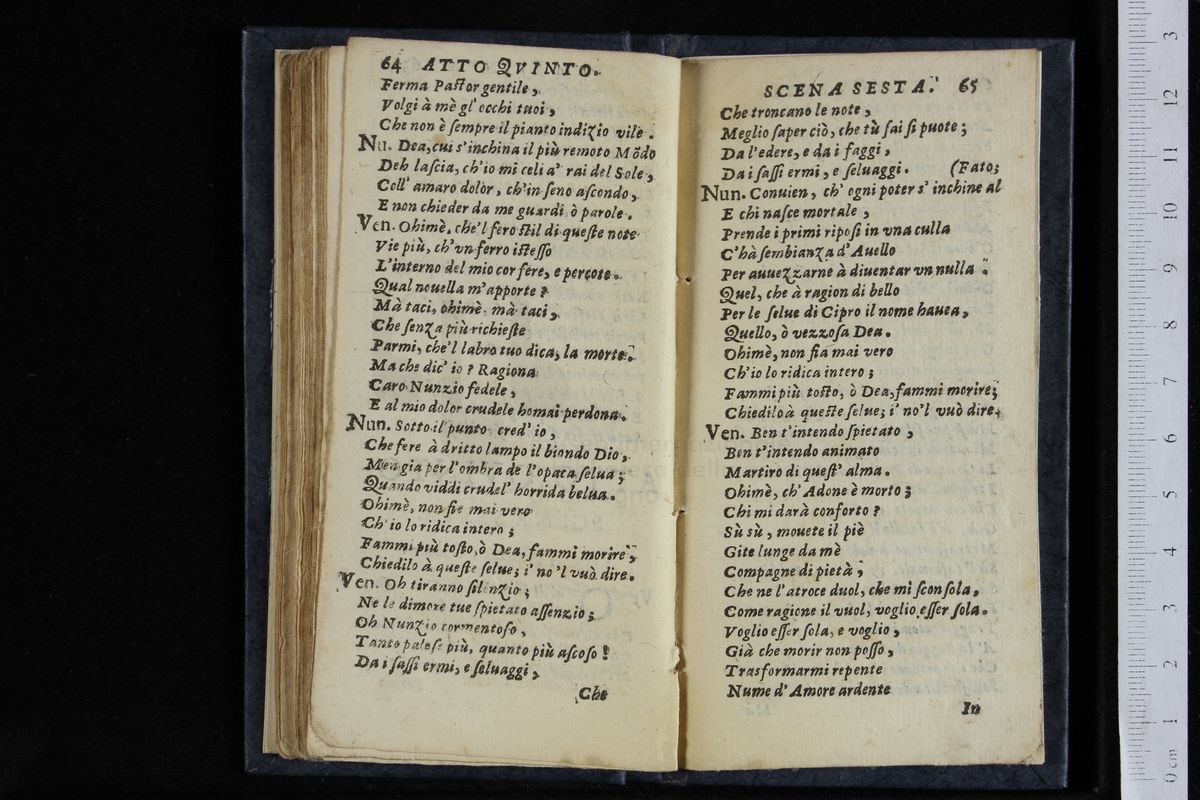 64 ATTO QVINTO.
Ferma Paſtor gentile,
Volgi à mè gl' occhi tuoi,
Che non è ſempre il pianto indizio vile.
Nu. Dea, cui s'inchina il più remoto Mõdo
Deh laſcia, ch'io mi celi a' rai del Sole,
Coll' amaro dolor, ch'in ſeno aſcondo,
E non chieder da me guardi ò parole.
Ven. Ohimè, che'l fero ſtil di queſte note
Vie più, ch'vn ferro iſteſſo
L'interno del mio cor fere, e percote.
Qual nouella m'apporte?
Mà taci, ohimè, mà taci,
Che ſenza più richieſte
Parmi, che'l labro tuo dica, la morte.
Ma che dic' io? Ragiona
Caro Nunzio fedele,
E al mio dolor crudele homai perdona.
Nun. Sotto il punto cred' io,
Che fere à dritto lampo il biondo Dio,
Men gia per l'ombra de l'opaca ſelua;
Quando viddi crudel' horrida belua.
Ohimè, non fie mai vero
Ch' io lo ridica intero;
Fammi più toſto, ò Dea, fammi morire;
Chiedilo à queſte ſelue; i' no'l vuò dire.
Ven. Oh tiranno ſilenzio;
Ne le dimore tue ſpietato aſſenzio;
Oh Nunzio tormentoſo,
Tanto paleſe più, quanto più aſcoſo!
Da i ſaſſi ermi, e ſeluaggi,
Che
SCENA SESTA. 65
Che troncano le note,
Meglio ſaper ciò, che tù ſai ſi puote;
Da l'edere, e da i faggi,
Da i ſaſſi ermi, e ſeluaggi. (Fato;
Nun. Conuien, ch' ogni poter s' inchine al
E chi naſce mortale,
Prende i primi ripoſi in vna culla
C'hà ſembianza d' Auello
Per auuezzarne à diuentar vn nulla.
Quel, che à ragion di bello
Per le ſelue di Cipro il nome hauea,
Quello, ò vezzoſa Dea.
Ohimè, non fia mai vero
Ch'io lo ridica intero;
Fammi più toſto, ò Dea, fammi morire;
Chiedilo à queſte ſelue; i' no'l vuò dire.
Ven. Ben t'intendo ſpietato,
Ben t'intendo animato
Martiro di queſt' alma.
Ohimè, ch' Adone è morto;
Chi mi darà conforto?
Sù sù, mouete il piè
Gite lunge da mè
Compagne di pietà;
Che ne l'atroce duol, che mi ſconſola,
Come ragione il vuol, voglio eſſer ſola.
Voglio eſſer ſola, e voglio,
Già che morir non poſſo,
Trasformarmi repente
Nume d' Amore ardente
In
0 cm 1 2 3 4 5 6 7 8 9 10 11 12 3